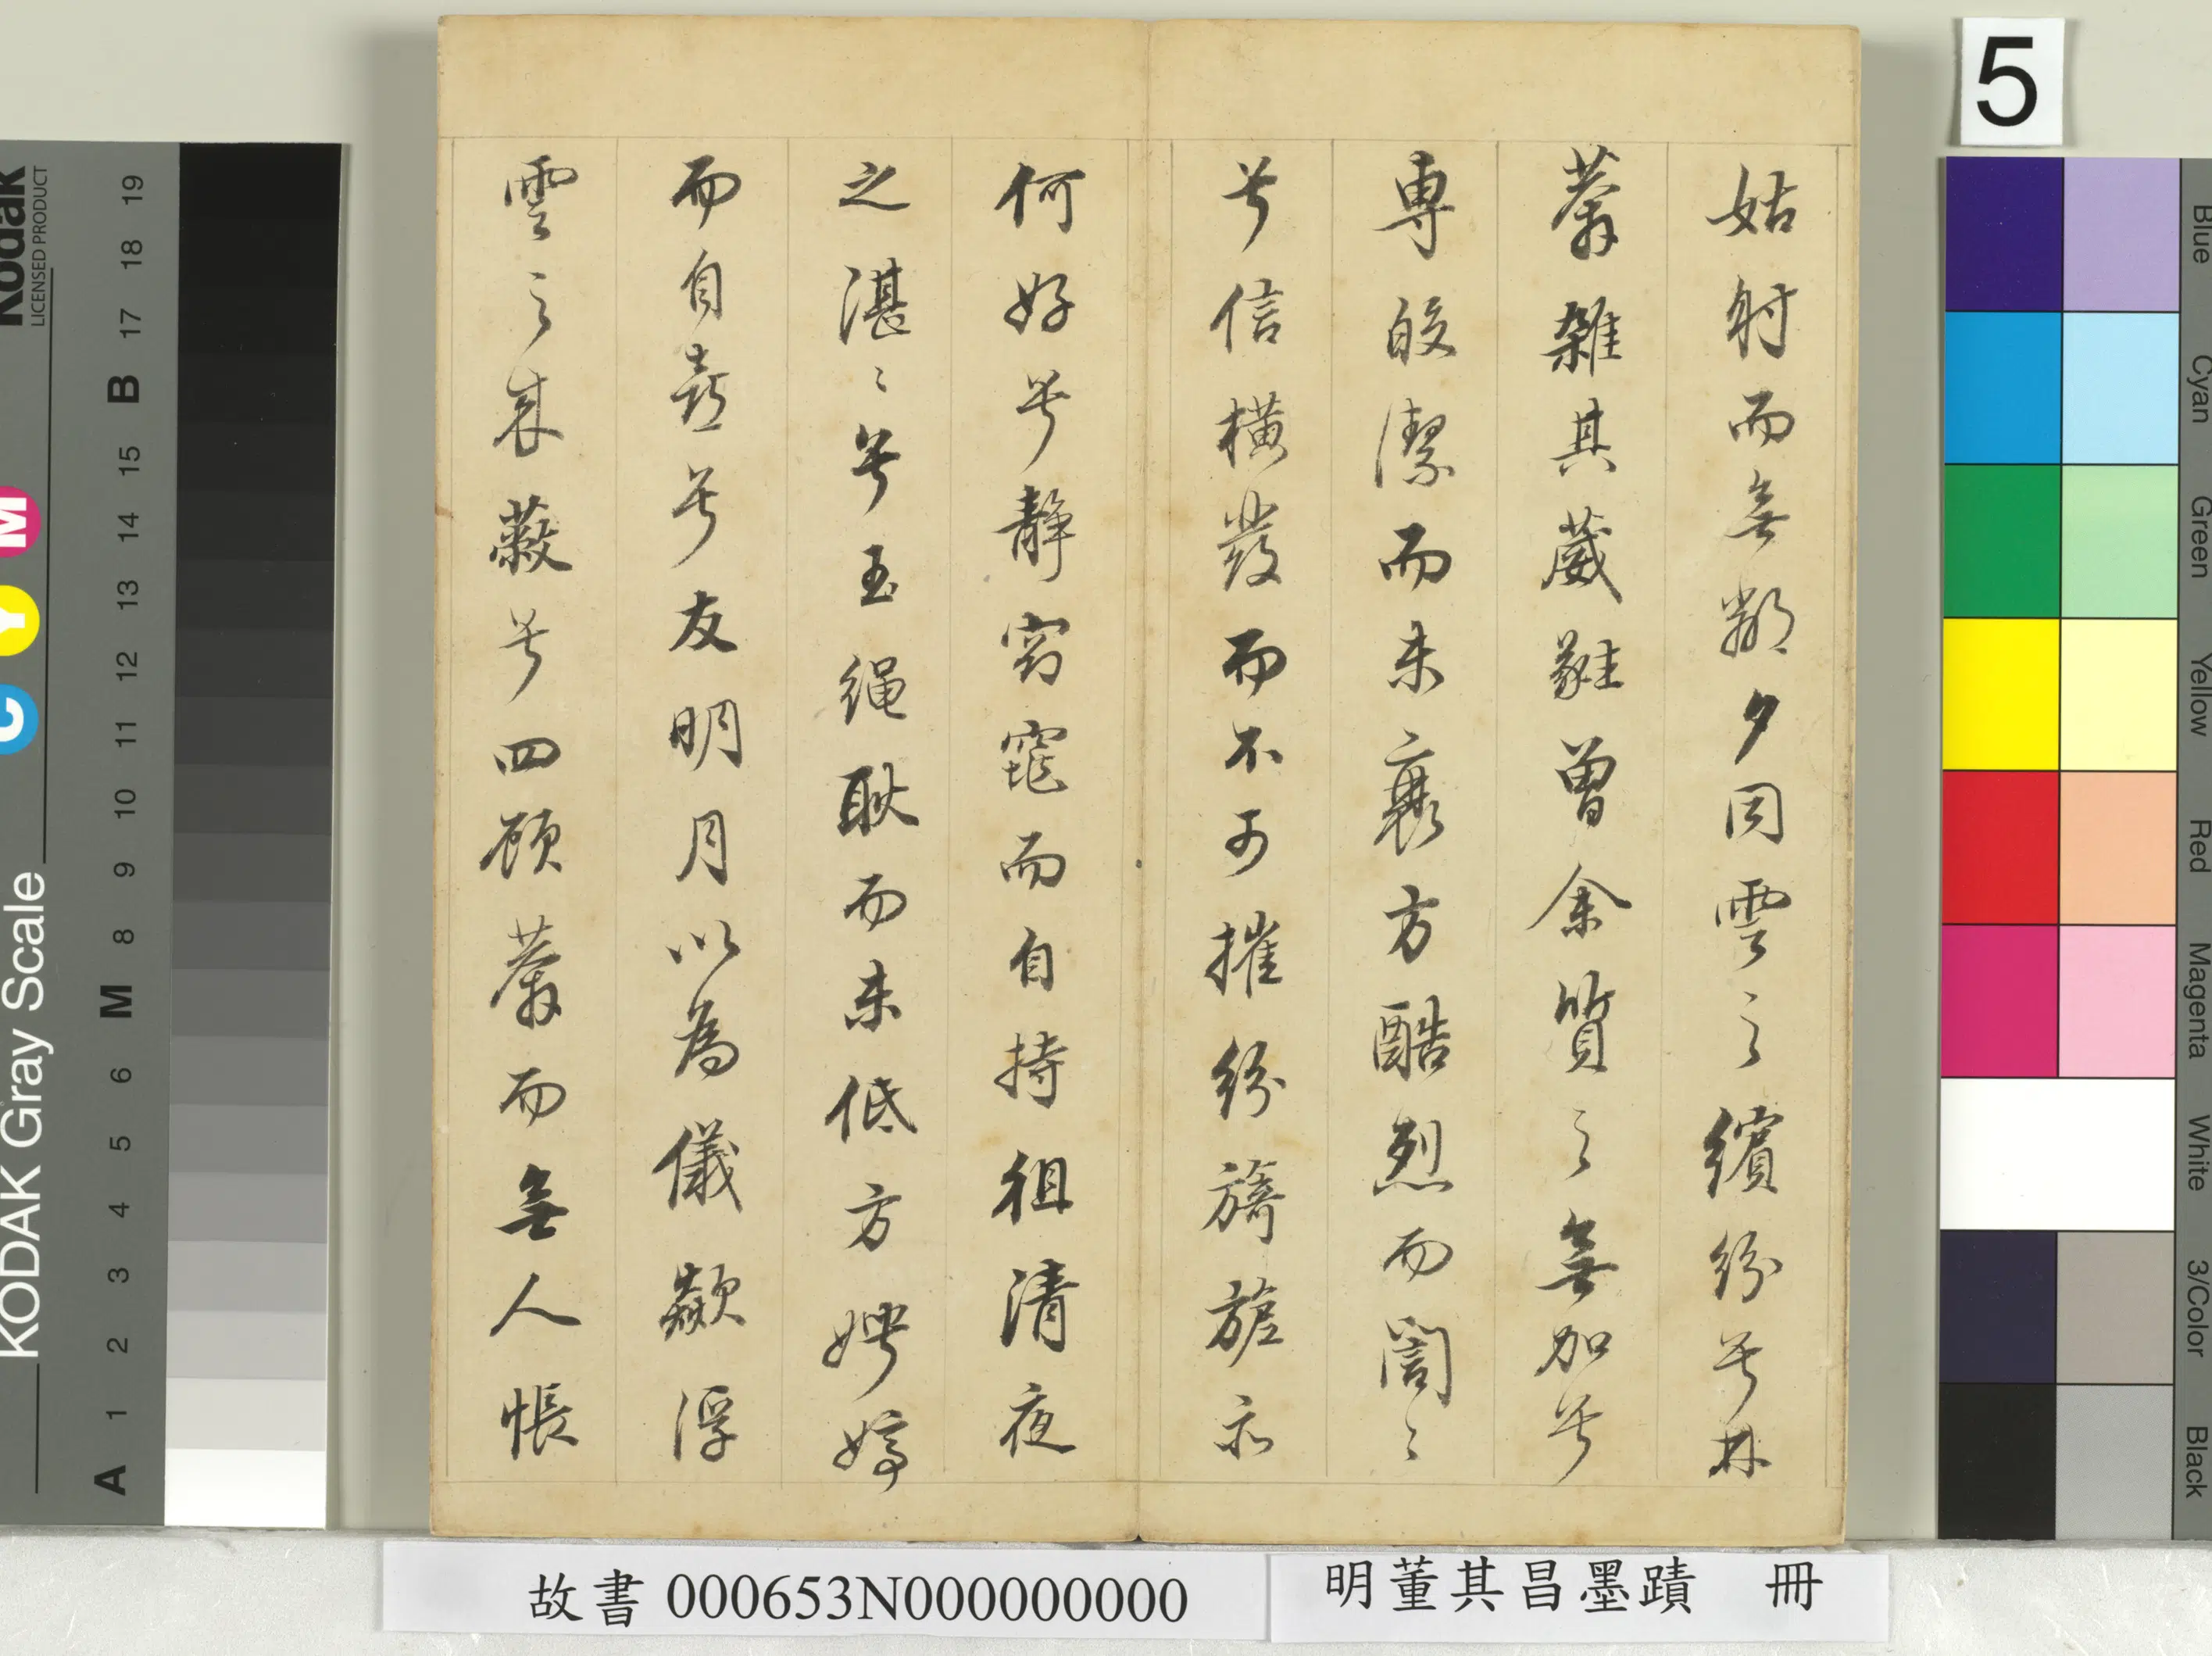 姑射而無鄰夕同雲之繽紛兮林
莽雜其葳蕤曾余質之無加兮
專皎潔而未衰方酷烈而誾〻
兮信橫發而不可摧紛旖旎亦
何好兮靜窈窕而自持徂清夜
之湛〻兮玉繩耿而未低方娉婷
而自喜兮友明月以為儀歘浮
雲之來蔽兮四顧莽而無人悵
故書 000653N000000000
明董其昌墨蹟 冊
5
KODAK Gray Scale
Kodak
LICENSED PRODUCT
C Y M
A 1 2 3 4 5 6 M 8 9 10 11 12 13 14 15 B 17 18 19
Blue
Cyan
Green
Yellow
Red
Magenta
White
3/Color
Black